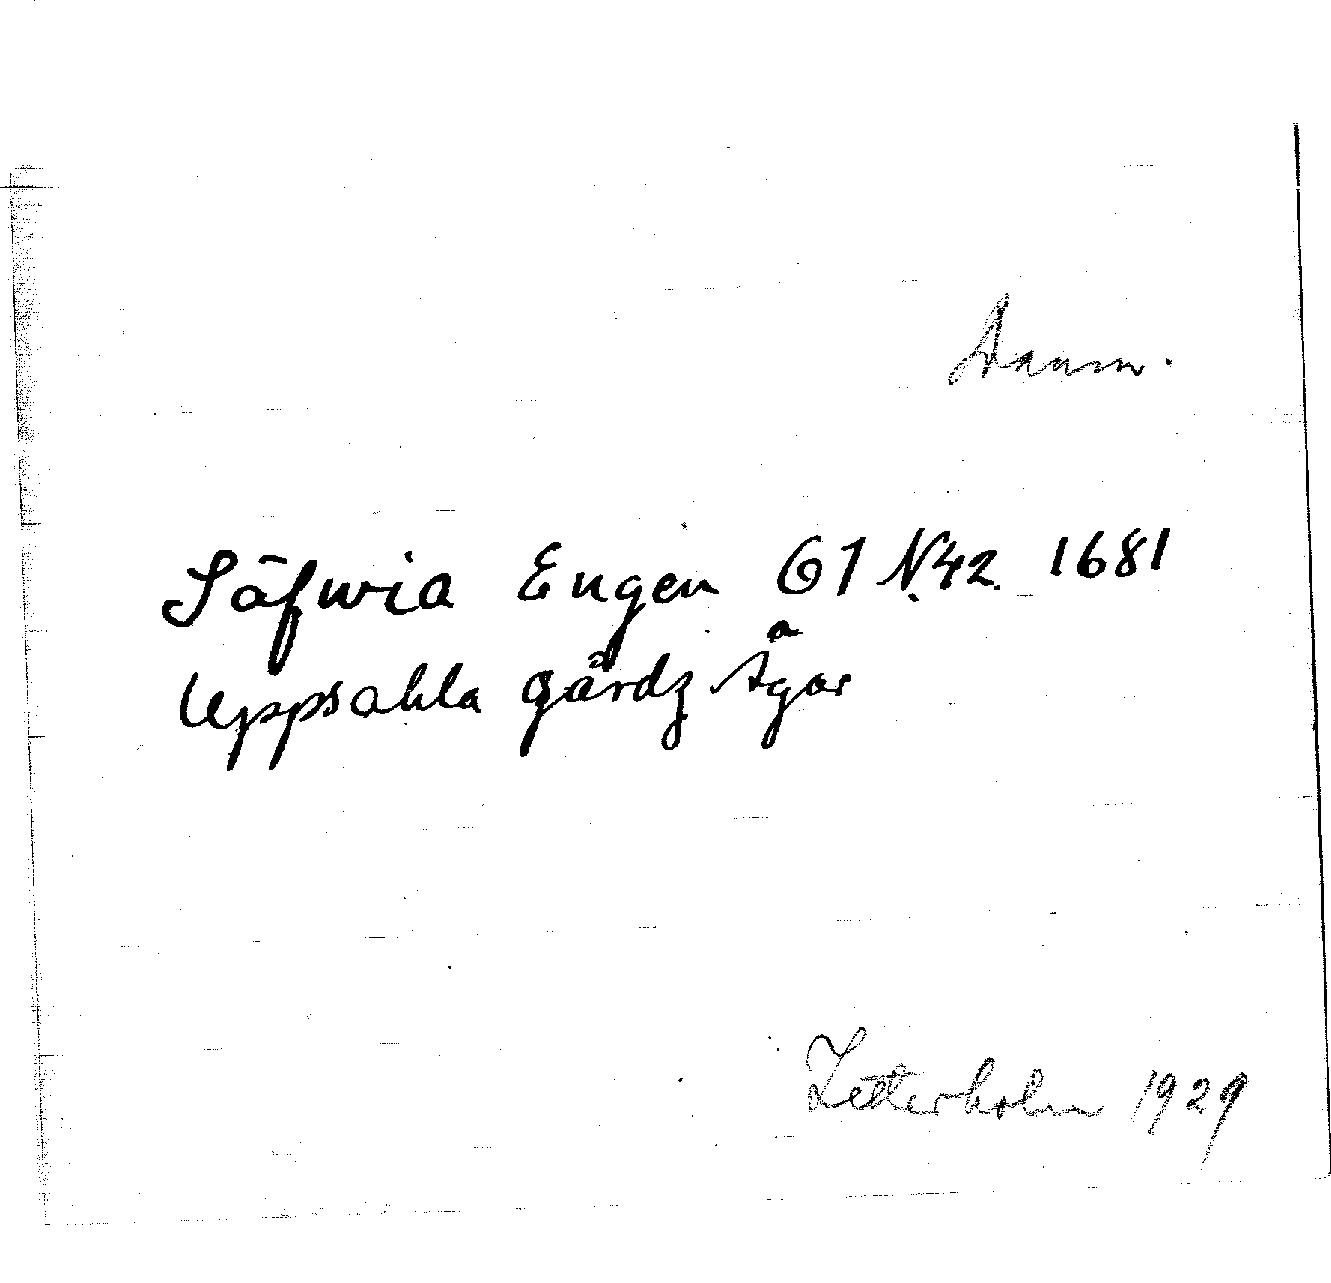 Danm.
Säfwia Engen G1 N:42. 1681
Uppsahla gårdz Ägor
Zetterholm 1929